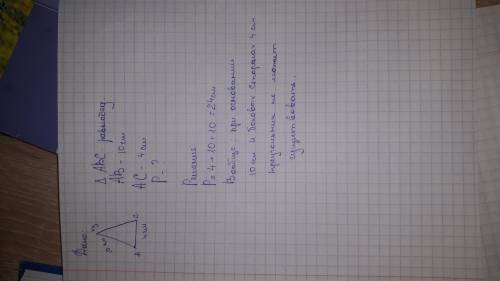 Дано:
B
10 см
A
4см
C
Δ ABC равнобед.
AB - 10 см
AC - 4 см
P - ?
Решение
P = 4 + 10 + 10 = 24см
Вообще при основании
10 см и боковых сторонах 4 см
треугольник не может
существовать.